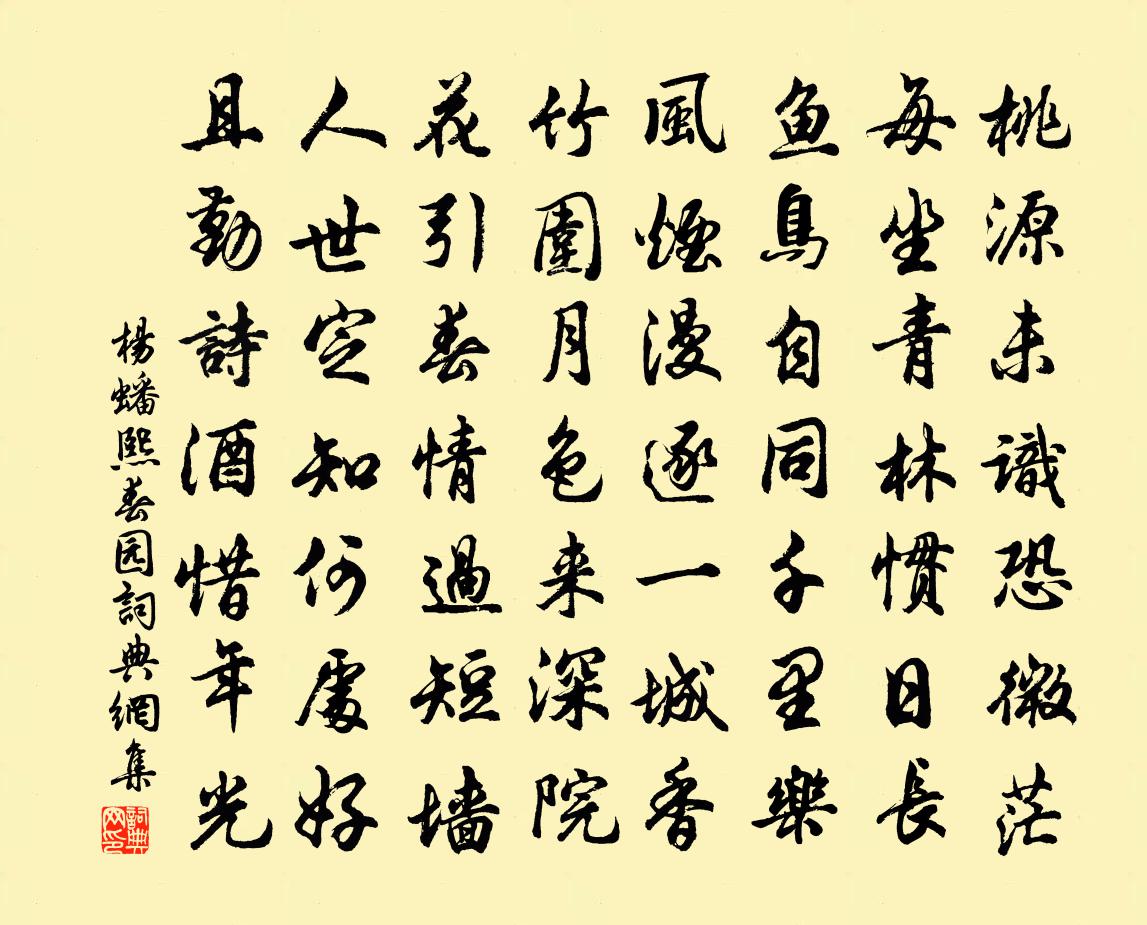 桃源未識恐微茫
每坐青林慣日長
魚鳥自同千里樂
風煙漫逐一城香
竹圍月色来深院
花引春情過短墙
人世定知何處好
且勤詩酒惜年光
楊蟠熙春园詞典網集
詞典网印